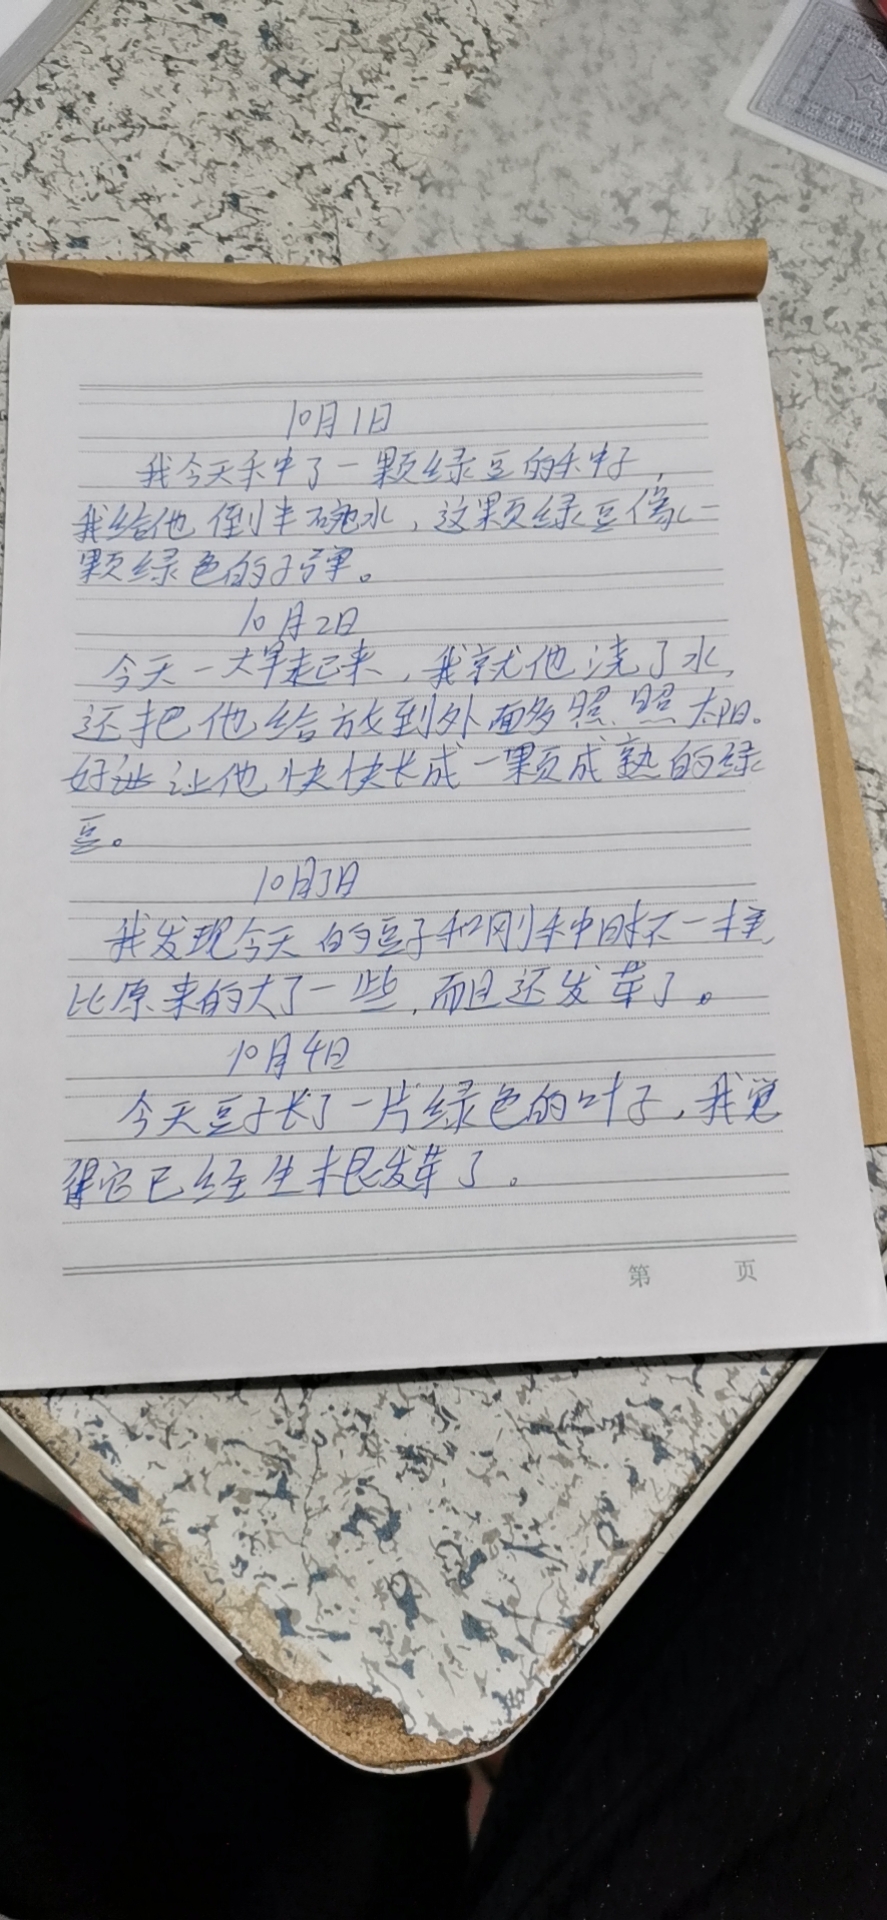 10月1日
我今天种了一颗绿豆的种子,
我给他倒半碗水,这颗绿豆像一
颗绿色的子弹。
10月2日
今天一大早起来,我就他浇了水,
还把他给放到外面多照照太阳。
好让他快快长成一颗成熟的绿
豆。
10月3日
我发现今天的豆子和刚种时不一样,
比原来的大了一些,而且还发芽了。
10月4日
今天豆子长了一片绿色的叶子,我觉
得它已经生根发芽了。
第 页